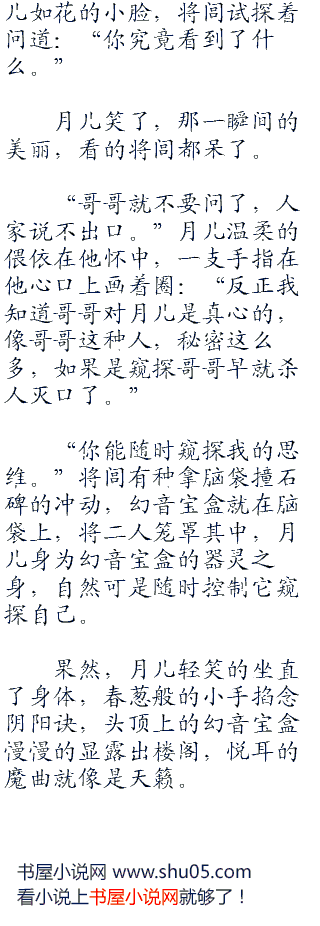 儿如花的小脸，将闾试探着
问道：“你究竟看到了什
么。”
月儿笑了，那一瞬间的
美丽，看的将闾都呆了。
“哥哥就不要问了，人
家说不出口。”月儿温柔的
偎依在他怀中，一支手指在
他心口上画着圈：“反正我
知道哥哥对月儿是真心的，
像哥哥这种人，秘密这么
多，如果是窥探哥哥早就杀
人灭口了。”
“你能随时窥探我的思
维。”将闾有种拿脑袋撞石
碑的冲动，幻音宝盒就在脑
袋上，将二人笼罩其中，月
儿身为幻音宝盒的器灵之
身，自然可是随时控制它窥
探自己。
果然，月儿轻笑的坐直
了身体，春葱般的小手掐念
阴阳诀，头顶上的幻音宝盒
慢慢的显露出楼阁，悦耳的
魔曲就像是天籁。
书屋小说网 www.shu05.com
看小说上书屋小说网就够了！